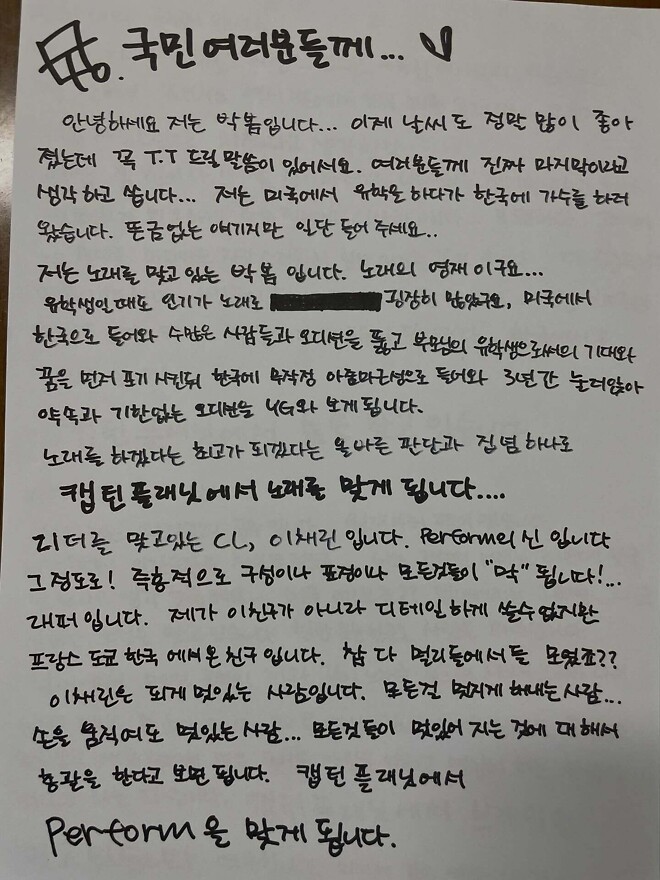 국민 여러분들께...
안녕하세요 저는 박봄입니다... 이제 날씨도 정말 많이 좋아
졌는데 꼭 T.T 드릴 말씀이 있어서요. 여러분들께 진짜 마지막이라고
생각하고 씁니다... 저는 미국에서 유학을 하다가 한국에 가수를 하러
왔습니다. 뜬금없는 얘기지만 일단 들어 주세요..
저는 노래를 맞고 있는 박봄 입니다. 노래의 영재이구요...
유학생인때도 인기가 노래로 굉장히 많았구요, 미국에서
한국으로 들어와 수많은 사람들과 오디션을 뚫고 부모님의 유학생으로써의 기대와
꿈을 먼저 포기 시킨뒤 한국에 무작정 아름마근성으로 들어와 3년간 눌러앉아
약속과 기한없는 오디션을 YG와 보게 됩니다.
노래를 하겠다는 최고가 되겠다는 올바른 판단과 집념 하나로
캡틴플래닛에서 노래를 맞게 됩니다....
리더를 맞고있는 CL, 이채린 입니다. Perform의 신 입니다
그정도로! 즉흥적으로 구성이나 표정이나 모든것들이 "딱" 됩니다!...
래퍼입니다. 제가 이친구가 아니라 디테일하게 쓸수없지만
프랑스 도쿄 한국 에서온 친구 입니다. 참 다 멀리들에서들 모였죠??
이채린은 되게 멋있는 사람입니다. 모든걸 멋지게 해내는 사람...
손을 움직여도 멋있는 사람... 모든것들이 멋있어 지는 것에 대해서
총괄을 한다고 보면 됩니다. 캡틴 플래닛에서
Perform을 맞게 됩니다.